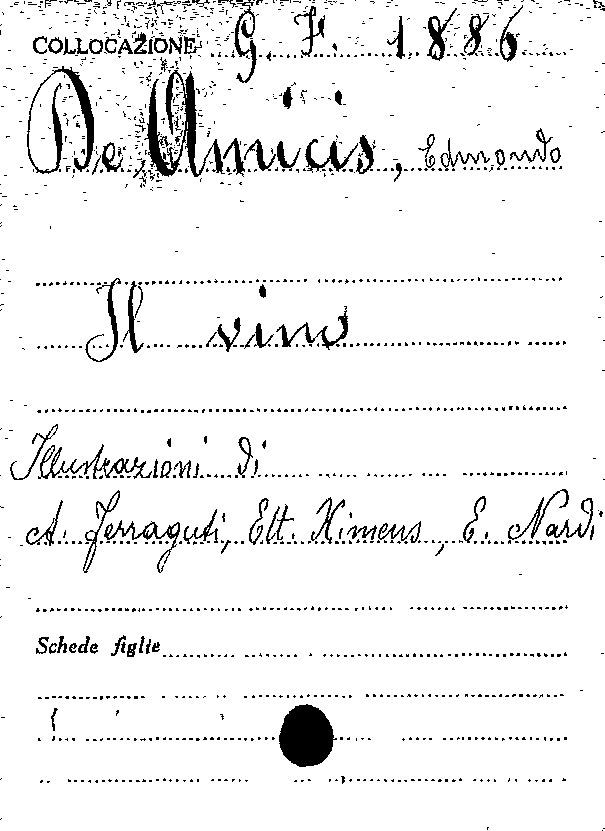 COLLOCAZIONE G. F. 1886
De Amicis, Edmondo
Il vino
Illustrazioni di
A. Ferraguti, Ett. Ximens, E. Nardi
Schede figlie